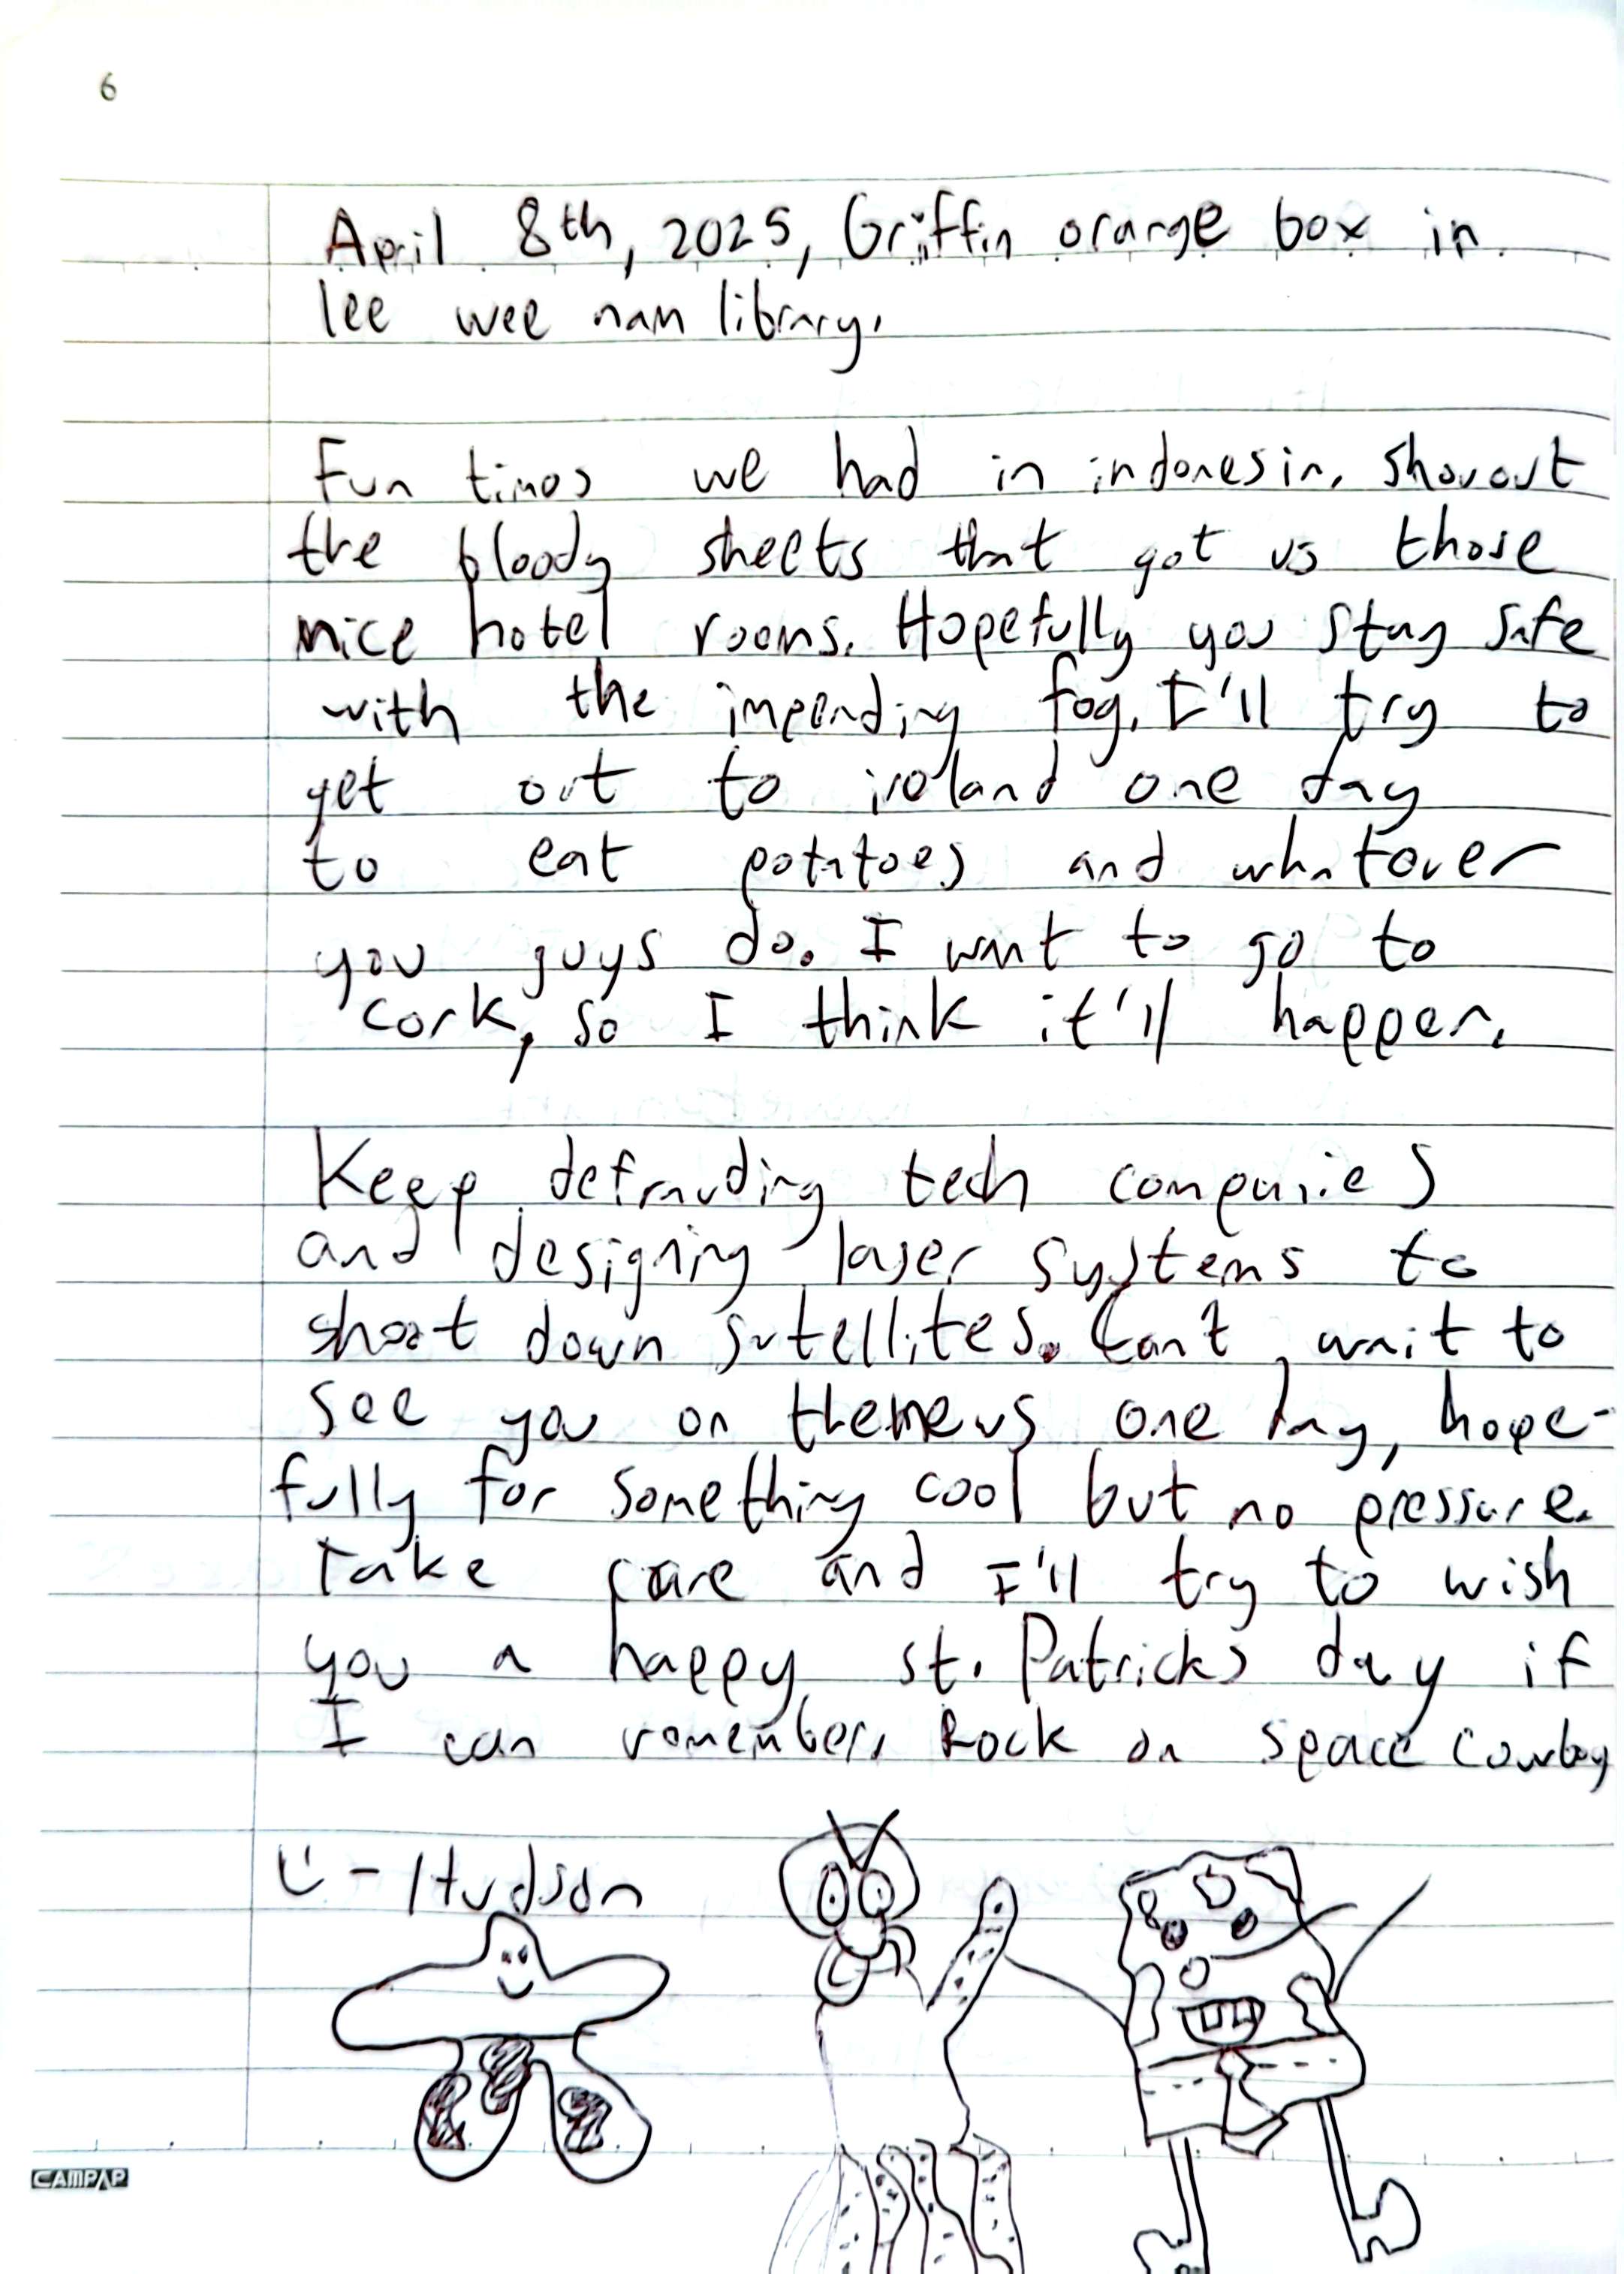 6
April 8th, 2025, Griffin orange box in
lee wee nam library.
Fun times we had in indonesia. Shouout
the bloody sheets that got us those
nice hotel rooms. Hopefully you stay safe
with the impending fog. I'll try to
get out to ireland one day
to eat potatoes and whatever
you guys do. I want to go to
cork, so I think it'll happen.
Keep defrauding tech companies
and designing laser systems to
shoot down satellites. Can't wait to
see you on the news one day, hope-
fully for something cool but no pressure.
Take care and I'll try to wish
you a happy st. Patricks day if
I can remember. Rock on space cowboy
- Hudson
CAMPAP